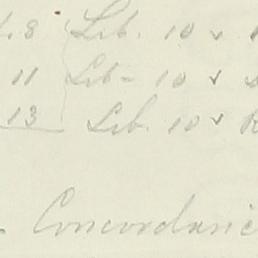 8 Lib. 10 v
11 Lib - 10 v
13 Lib. 10 v R
Concordanc